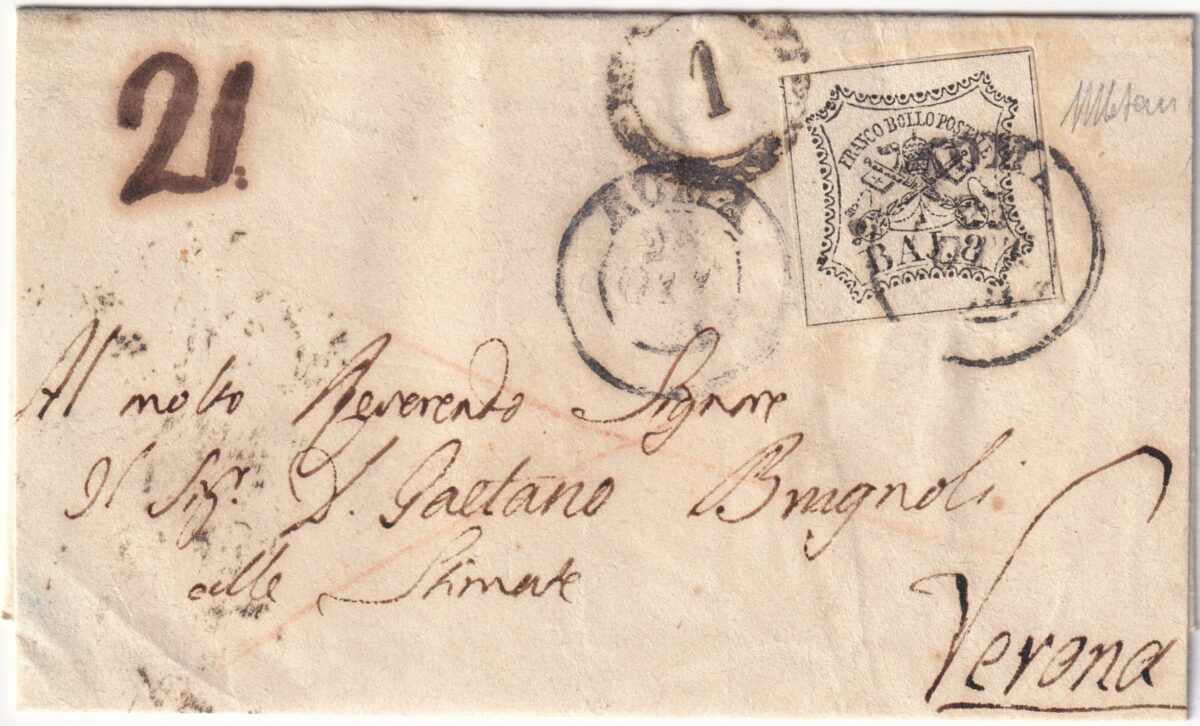 21:
1
FRANCO BOLLO POSTALE
BAI. 8
ROMA
ROMA
Al molto Reverendo Signore
Il Sigr. D. Gaetano Brugnoli
alle Stimate
Verona